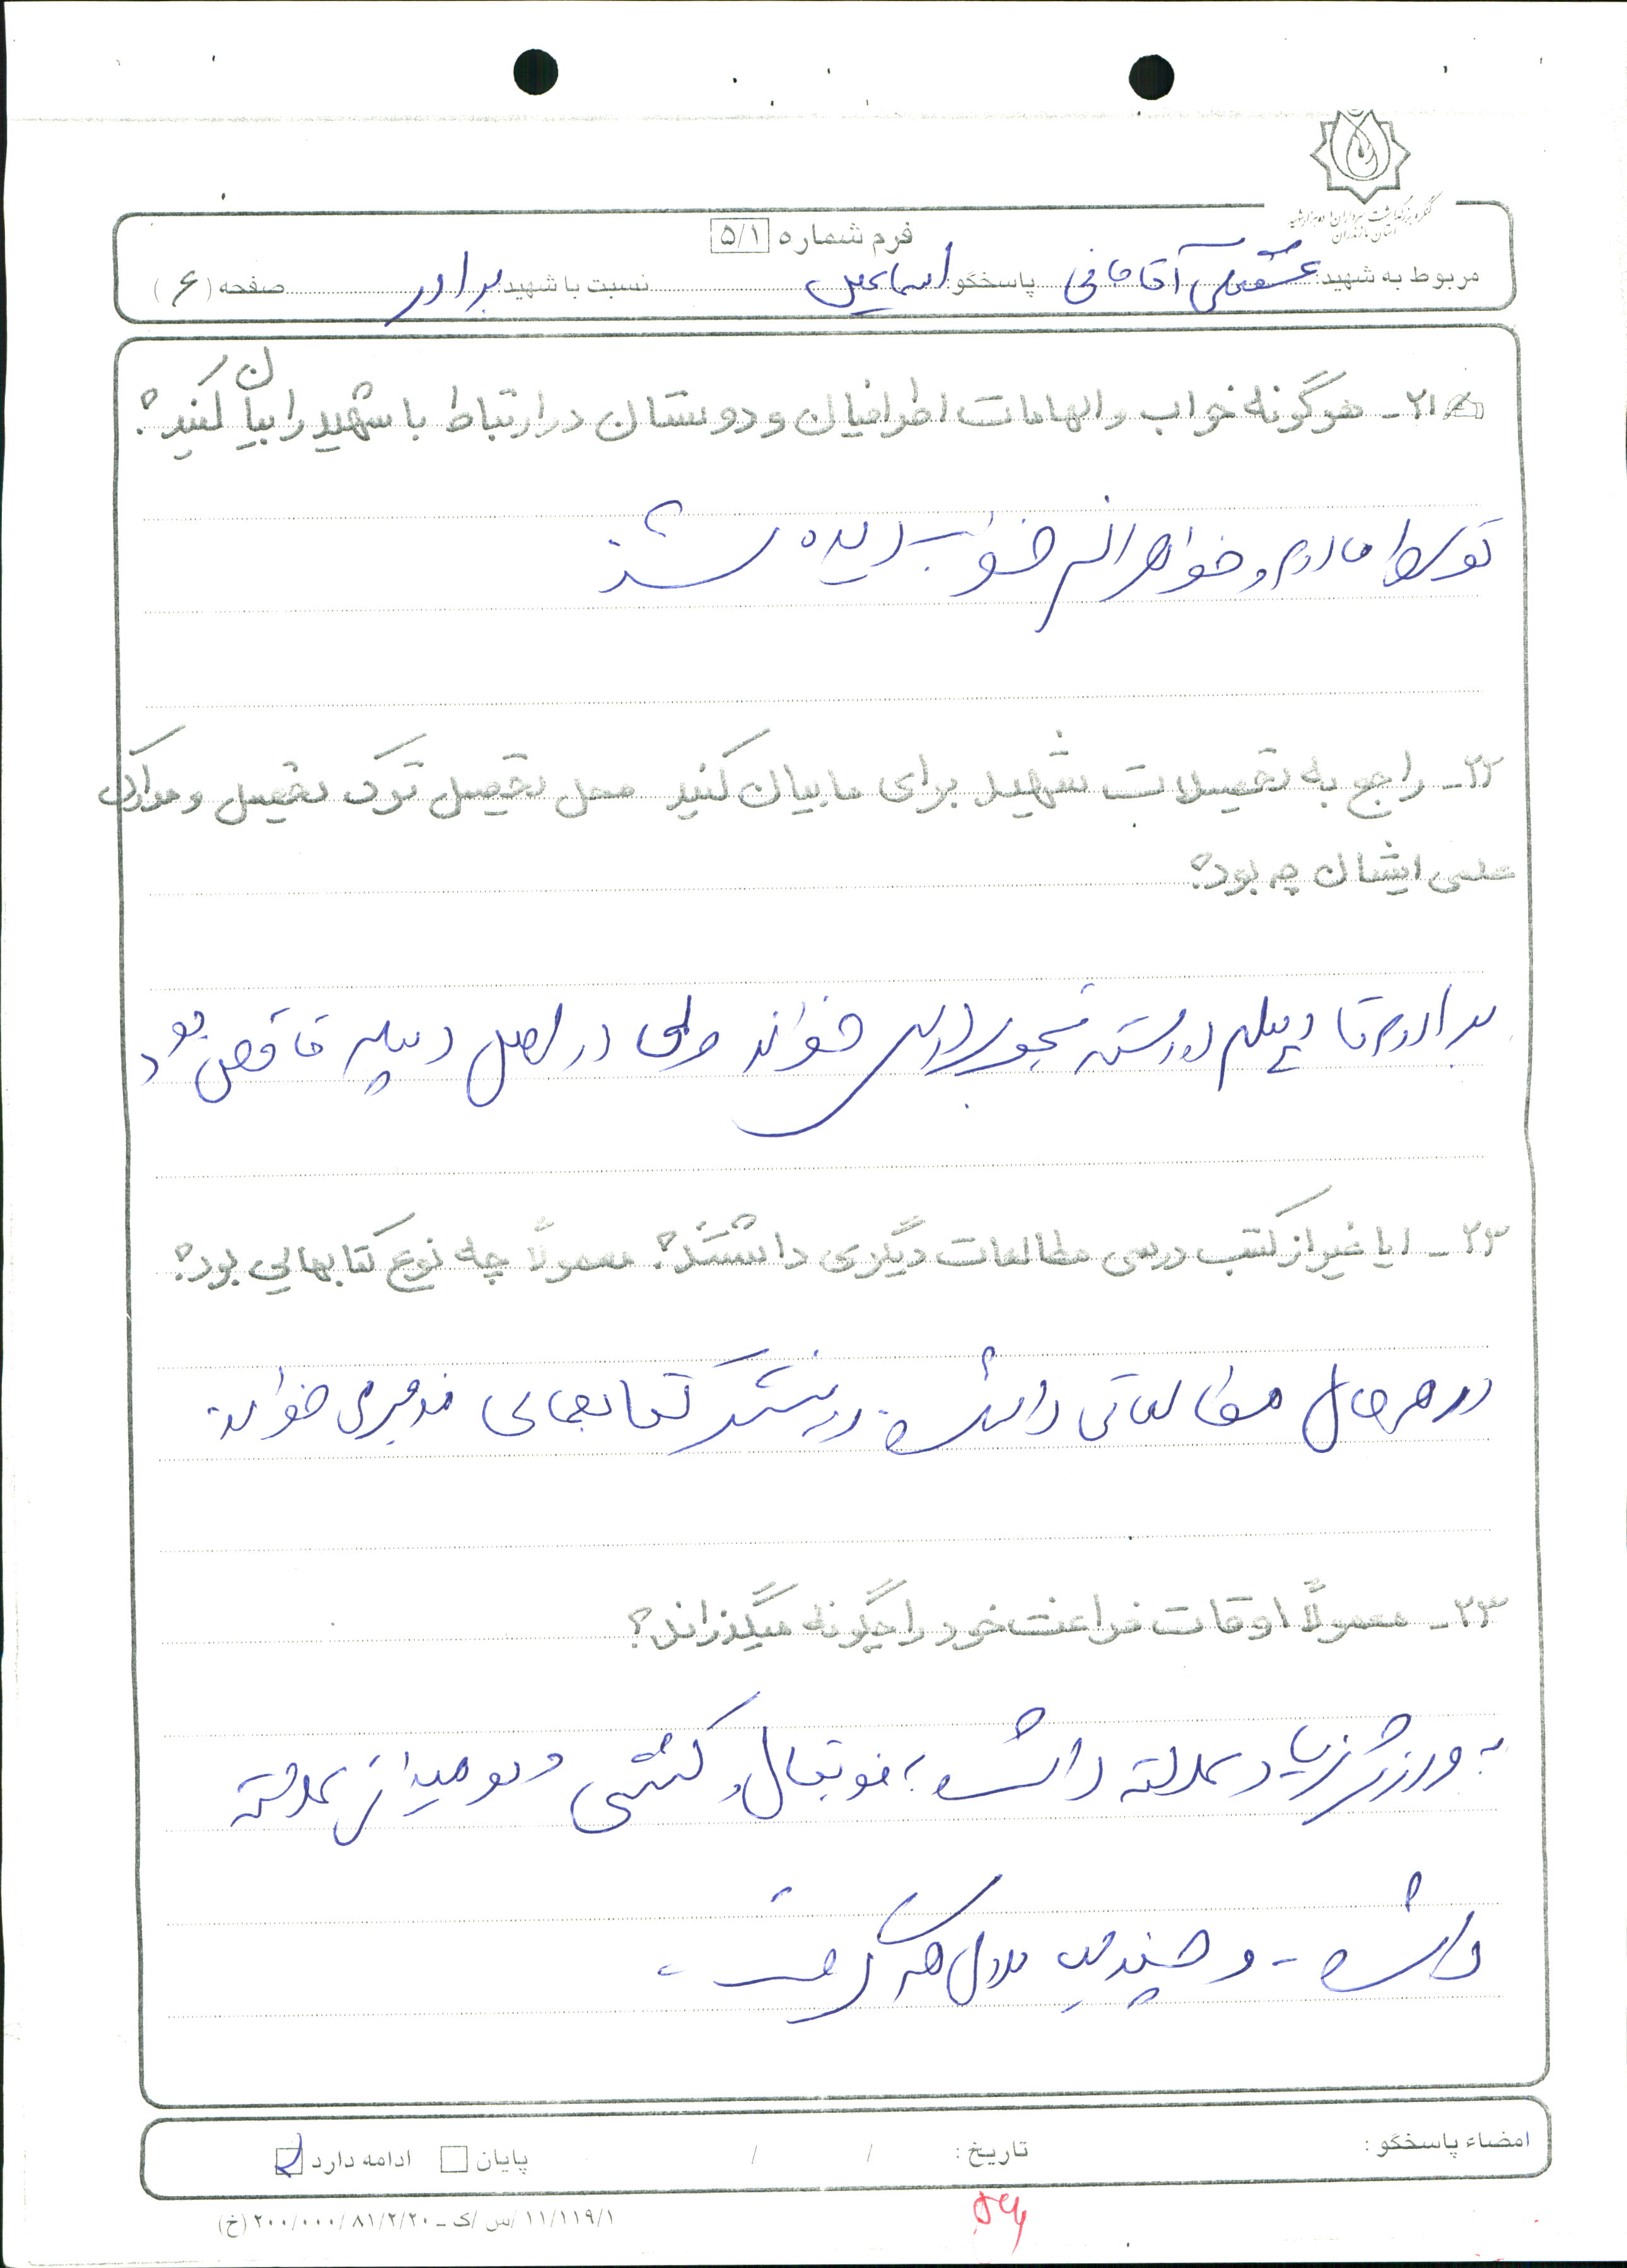 کنگره بزرگداشت سرداران و ده هزار شهید
استان مازندران
فرم شماره ۵/۱
مربوط به شهید: عشقعلی آقاجانی پاسخگو: اسماعیل نسبت با شهید: برادر صفحه (۶)
۲۱- هرگونه خواب و الهامات اطرافیان و دوستان در ارتباط با شهید را بیان کنید؟
توسط مادرم و خواهرانم خواب دیده شد
۲۲- راجع به تحصیلات شهید برای ما بیان کنید محل تحصیل ترک تحصیل و مدارک
علمی ایشان چه بود؟
برادرم تا دیپلم در رشته تجربی درس خواند ولی در اصل دیپلم ناقص بود
۲۳- ایا غیر از کتب درسی مطالعات دیگری داشتند؟ معمولاً چه نوع کتابهایی بود؟
در هر حال مطالعاتی داشت و بیشتر کتابهای مذهبی خواند
۲۳- معمولاً اوقات فراغت خود را چگونه میگذراند؟
به ورزش زیاد علاقه داشت، فوتبال و کشتی و دو میدانی علاقه
داشت - و چندین مدال هم گرفت.
امضاء پاسخگو: تاریخ: / / پایان ادامه دارد
۱۱/۱۱۹/۱ /س /ک - ۲۰۰/۰۰۰/۸۱/۲/۲۰ (خ)